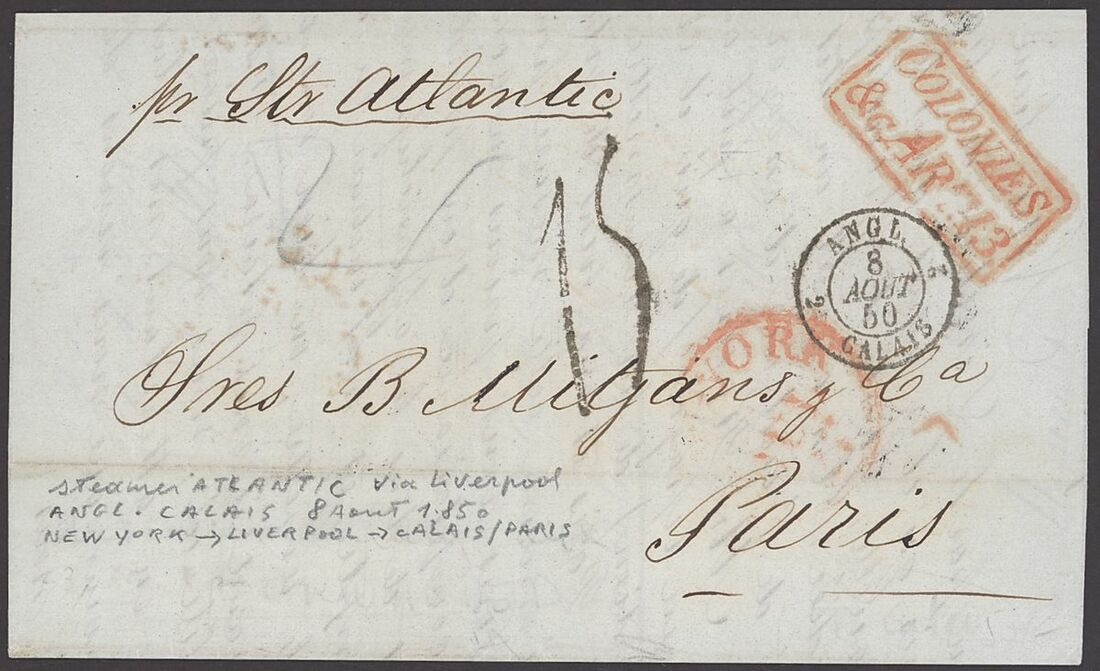 pr Str Atlantic
COLONIES
&c. ART. 13
15
ANGL.
8
AOUT
50
2 2
CALAIS
YORK
Sres B Mitjans y Ca
Paris
steamer ATLANTIC via Liverpool
ANGL. CALAIS 8 Aout 1.850
NEW YORK → LIVERPOOL → CALAIS/PARIS